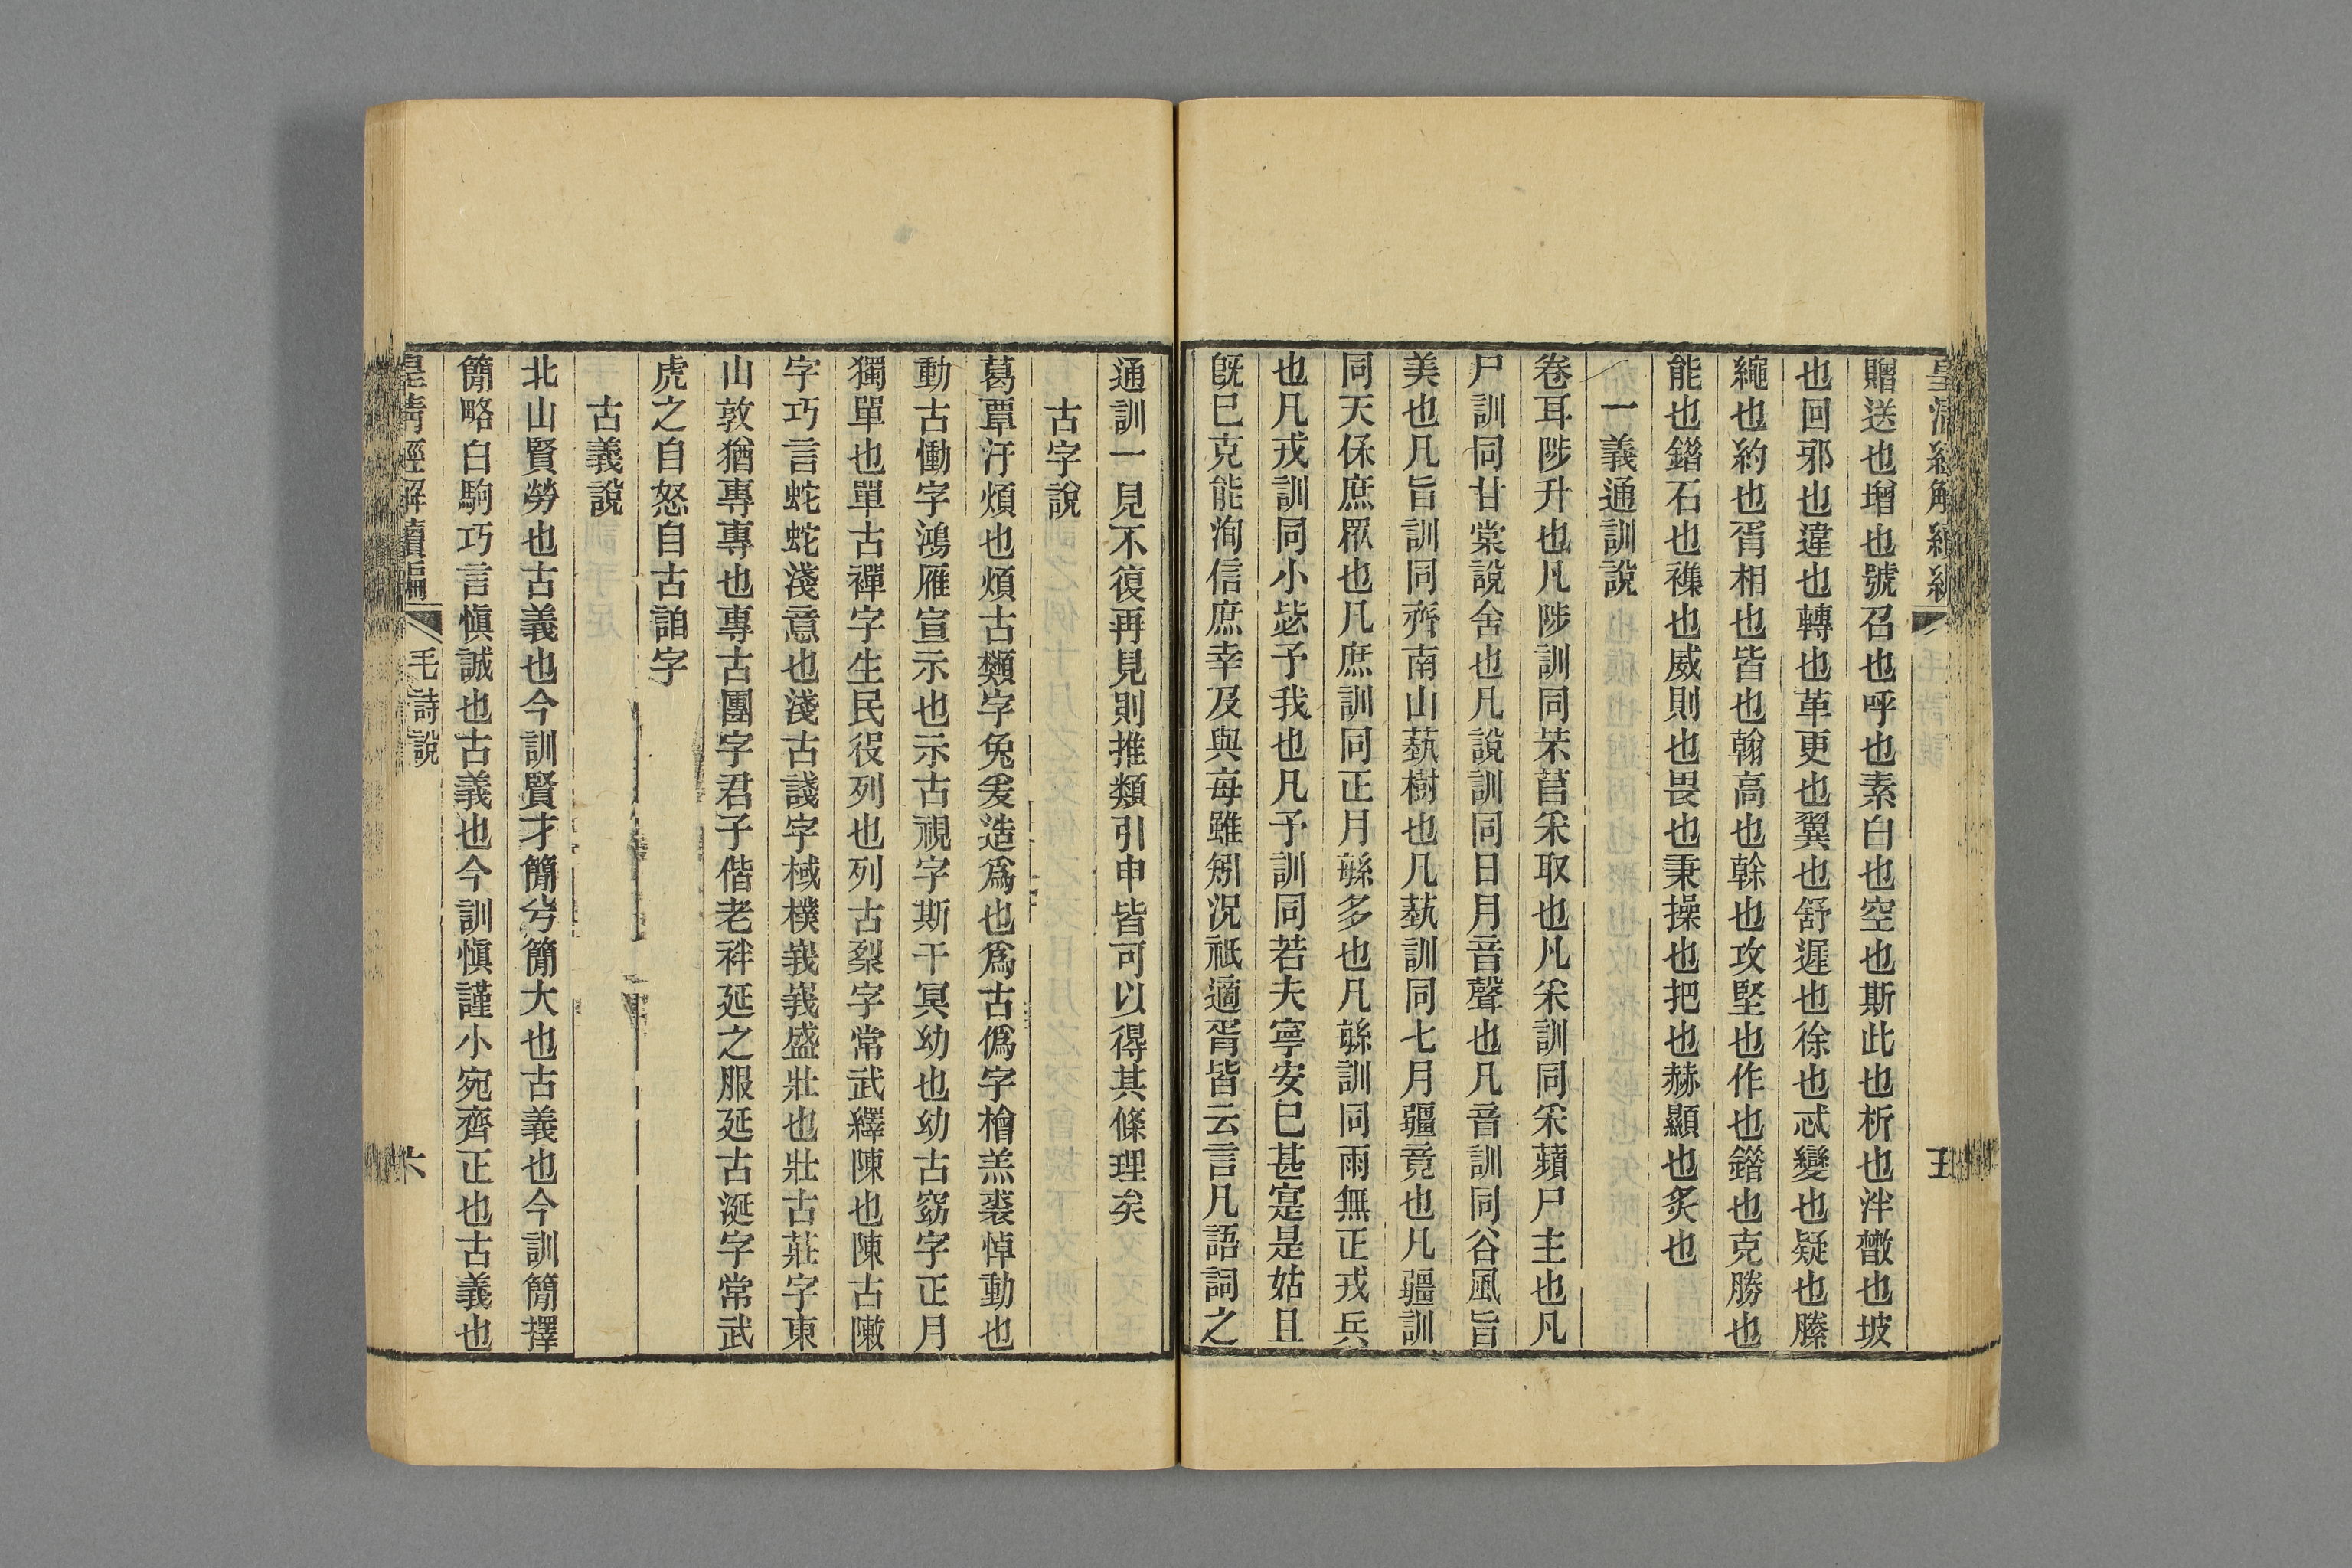 皇清經解續編
毛詩說
五
贈送也增也號召也呼也素白也空也斯此也析也泮㪚也坡
也回邪也違也轉也革更也翼也舒遲也徐也忒變也疑也縢
繩也約也胥相也皆也翰高也榦也攻堅也作也錯也克勝也
能也錯石也襍也威則也畏也秉操也把也赫顯也炙也
一義通訓說
卷耳陟升也凡陟訓同芣苢采取也凡采訓同采蘋尸主也凡
尸訓同甘棠說舍也凡說訓同日月音聲也凡音訓同谷風旨
美也凡旨訓同齊南山蓺樹也凡蓺訓同七月疆竟也凡疆訓
同天保庶眾也凡庶訓同正月緐多也凡緐訓同雨無正戎兵
也凡戎訓同小毖予我也凡予訓同若夫寧安已甚寔是姑且
旣已克能洵信庶幸及與每雖矧況祇適胥皆云言凡語詞之
通訓一見不復再見則推類引申皆可以得其條理矣
古字說
葛覃汙煩也煩古䫶字兔爰造爲也爲古僞字檜羔裘悼動也
動古慟字鴻雁宣示也示古視字斯干冥幼也幼古窈字正月
獨單也單古襌字生民役列也列古梨字常武繹陳也陳古敶
字巧言蛇蛇淺意也淺古諓字棫樸峩峩盛壯也壯古莊字東
山敦猶專專也專古團字君子偕老袢延之服延古涎字常武
虎之自怒自古詯字
古義說
北山賢勞也古義也今訓賢才簡兮簡大也古義也今訓簡擇
簡略白駒巧言愼誠也古義也今訓愼謹小宛齊正也古義也
皇清經解續編
毛詩說
六